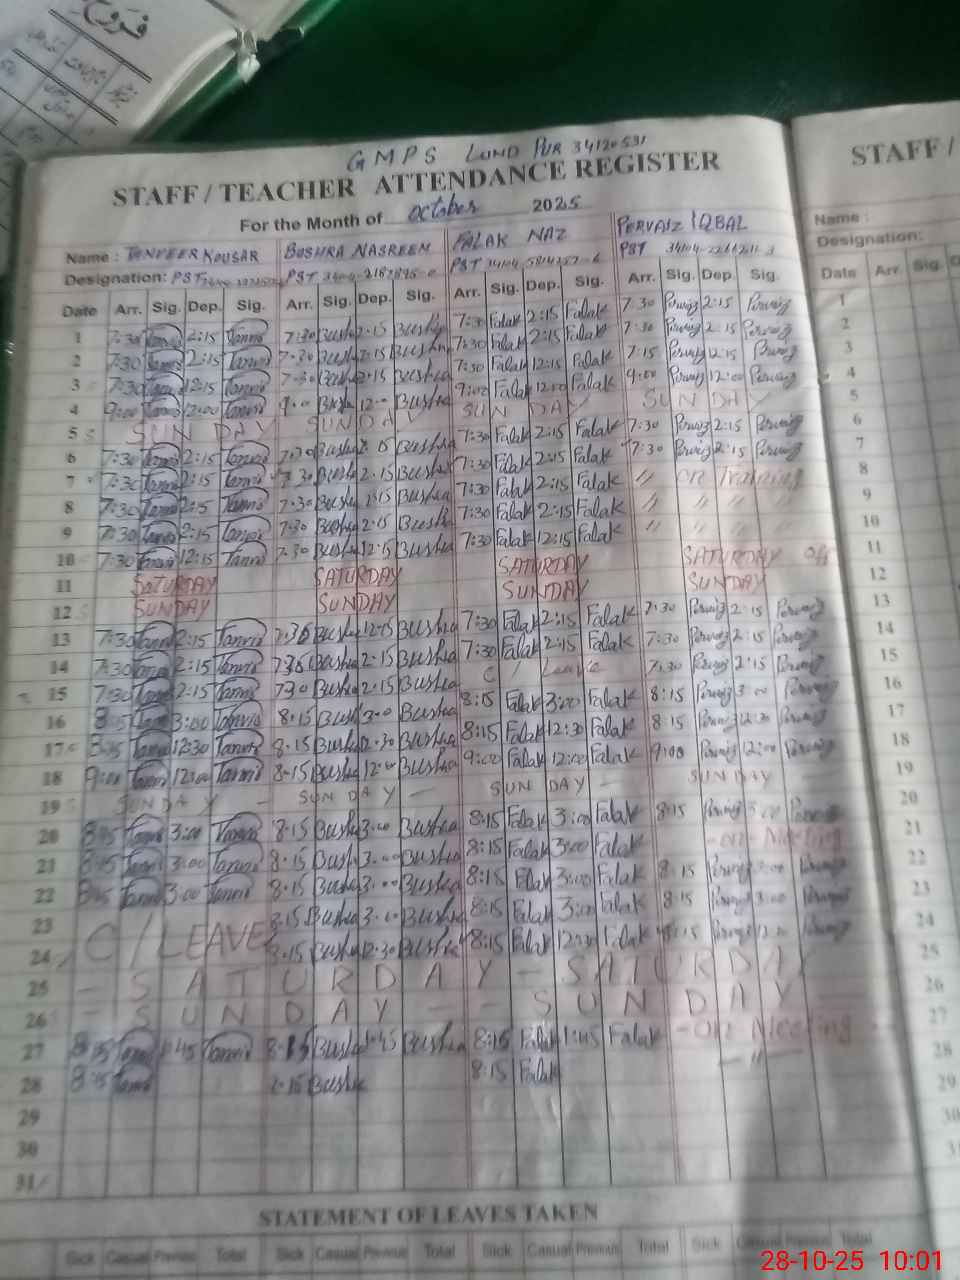 GMPS LUND PUR 34120531
STAFF / TEACHER ATTENDANCE REGISTER
For the Month of October 2025
Name : TANVEER KOUSAR BUSHRA NASREEM FALAK NAZ PERVAIZ IQBAL
Designation: PST PST PST PST
Date Arr. Sig. Dep. Sig. Arr. Sig. Dep. Sig. Arr. Sig. Dep. Sig. Arr. Sig. Dep. Sig.
1 7:30 Tanvir 2:15 Tanvir 7:30 Bushra 2:15 Bushra 7:30 Falak 2:15 Falak 7:30 Perwiz 2:15 Perwiz
2 7:30 Tanvir 2:15 Tanvir 7:30 Bushra 2:15 Bushra 7:30 Falak 2:15 Falak 7:30 Perwiz 2:15 Perwiz
3 7:30 Tanvir 12:15 Tanvir 7:30 Bushra 12:15 Bushra 7:30 Falak 12:15 Falak 7:15 Perwiz 12:15 Perwiz
4 9:00 Tanvir 12:00 Tanvir 9:00 Bushra 12:00 Bushra 9:00 Falak 12:00 Falak 9:00 Perwiz 12:00 Perwiz
5 SUN DAY SUN DAY SUN DAY SUN DAY
6 7:30 Tanvir 2:15 Tanvir 7:30 Bushra 2:15 Bushra 7:30 Falak 2:15 Falak 7:30 Perwiz 2:15 Perwiz
7 7:30 Tanvir 2:15 Tanvir 7:30 Bushra 2:15 Bushra 7:30 Falak 2:15 Falak 7:30 Perwiz 2:15 Perwiz
8 7:30 Tanvir 2:15 Tanvir 7:30 Bushra 2:15 Bushra 7:30 Falak 2:15 Falak // on Training
9 7:30 Tanvir 2:15 Tanvir 7:30 Bushra 2:15 Bushra 7:30 Falak 2:15 Falak // // //
10 7:30 Tanvir 12:15 Tanvir 7:30 Bushra 12:15 Bushra 7:30 Falak 12:15 Falak // // //
11 SATURDAY SATURDAY SATURDAY SATURDAY off
12 SUNDAY SUNDAY SUNDAY SUNDAY
13 7:30 Tanvir 2:15 Tanvir 7:30 Bushra 12:15 Bushra 7:30 Falak 2:15 Falak 7:30 Perwiz 2:15 Perwiz
14 7:30 Tanvir 2:15 Tanvir 7:30 Bushra 2:15 Bushra 7:30 Falak 2:15 Falak 7:30 Perwiz 2:15 Perwiz
15 7:30 Tanvir 2:15 Tanvir 7:30 Bushra 2:15 Bushra C / Leave 7:30 Perwiz 2:15 Perwiz
16 8:15 Tanvir 3:00 Tanvir 8:15 Bushra 3:00 Bushra 8:15 Falak 3:00 Falak 8:15 Perwiz 3:00 Perwiz
17 8:15 Tanvir 12:30 Tanvir 8:15 Bushra 12:30 Bushra 8:15 Falak 12:30 Falak 8:15 Perwiz 12:30 Perwiz
18 9:00 Tanvir 12:00 Tanvir 8:15 Bushra 12:00 Bushra 9:00 Falak 12:00 Falak 9:00 Perwiz 12:00 Perwiz
19 SUNDAY - SUN DAY - SUN DAY - SUN DAY
20 8:15 Tanvir 3:00 Tanvir 8:15 Bushra 3:00 Bushra 8:15 Falak 3:00 Falak 8:15 Perwiz 3:00 Perwiz
21 8:15 Tanvir 3:00 Tanvir 8:15 Bushra 3:00 Bushra 8:15 Falak 3:00 Falak - on - Meeting
22 8:15 Tanvir 3:00 Tanvir 8:15 Bushra 3:00 Bushra 8:15 Falak 3:00 Falak 8:15 Perwiz 3:00 Perwiz
23 C / LEAVE 8:15 Bushra 3:00 Bushra 8:15 Falak 3:00 Falak 8:15 Perwiz 3:00 Perwiz
24 8:15 Bushra 12:30 Bushra 8:15 Falak 12:30 Falak 8:15 Perwiz Perwiz
25 - SATURDAY - SATURDAY
26 - SUNDAY - - SUNDAY -
27 8:15 Tanvir 1:45 Tanvir 8:15 Bushra 1:45 Bushra 8:15 Falak 1:45 Falak - on Meeting -
28 8:15 Tanvir 8:15 Bushra 8:15 Falak - // -
29
30
31
STATEMENT OF LEAVES TAKEN
Sick Casual Previous Total Sick Casual Previous Total Sick Casual Previous Total Sick Casual Previous Total
STAFF /
Name :
Designation:
Date Arr. Sig.
1
2
3
4
5
6
7
8
9
10
11
12
13
14
15
16
17
18
19
20
21
22
23
24
25
26
27
28
29
30
28-10-25 10:01